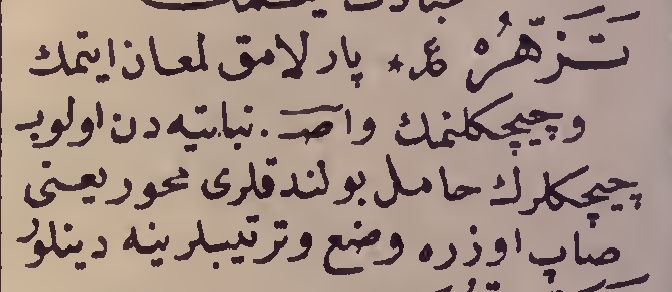 تَزَهُّرْ ع٭ پارلامق لمعان ايتمك
وچيچكلنمك واصـ. نباتيه دن اولوب
چيچكلرك حامل بولندقلرى محور يعنى
صاپ اوزره وضع وترتيبلرينه دينلور